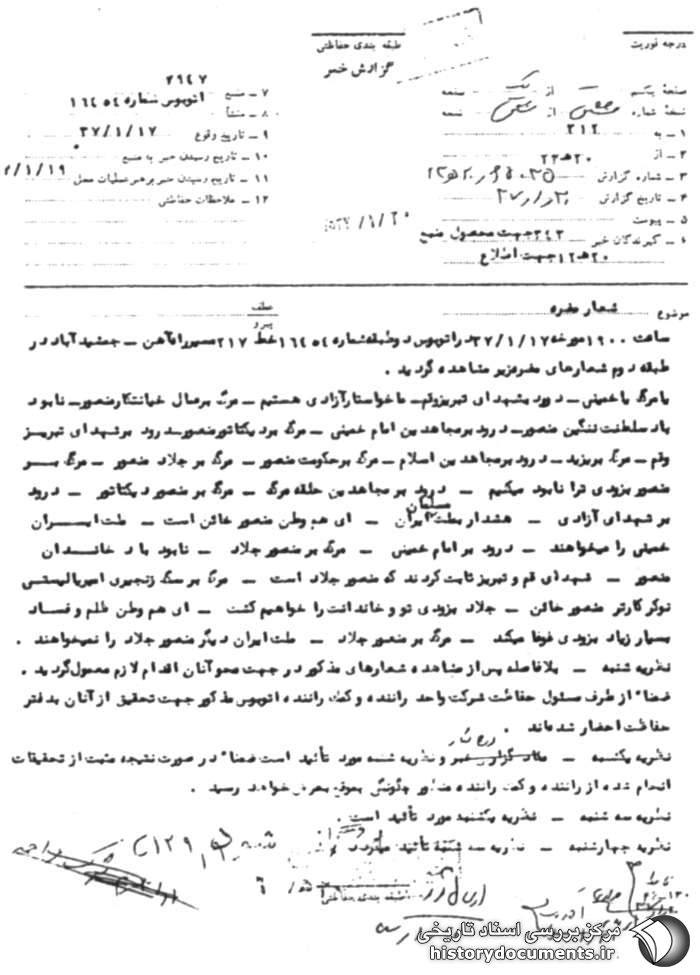 درجه فوریت
طبقه بندی حفاظتی
گزارش خبر
صفحهٔ یکم از یک صفحه
نسخهٔ شماره از نسخه
۱ ـ به ۳۱۲
۲ ـ از ۲۰ه‍۲۲
۳ ـ شماره گزارش
۴ ـ تاریخ گزارش
۵ ـ پیوست
۶ ـ گیرندگان خبر ۳۴۳ جهت محصول منبع
۲۰ه‍۱۲ جهت اطلاع
۷ ـ منبع ۲۹۴۷
۸ ـ منشأ اتوبوس شماره ۱۶۴۵۴
۹ ـ تاریخ وقوع ۳۷/۱/۱۷
۱۰ ـ تاریخ رسیدن خبر به منبع
۱۱ ـ تاریخ رسیدن خبر برهبر عملیات محل ۱/۱۹
۱۲ ـ ملاحظات حفاظتی
موضوع شعار مضره
عطف
پیرو
ساعت ۱۹۰۰ مورخه ۳۷/۱/۱۷ در اتوبوس دو طبقه شماره ۱۶۴۵۴ خط ۲۱۷ مسیر راه‌آهن ـ جمشیدآباد در
طبقه دوم شعارهای مضره زیر مشاهده گردید .
یا مرگ یا خمینی ـ درود بشهدای تبریز وقم ـ ما خواستار آزادی هستیم ـ مرگ بر عمال خیانتکار منصور ـ نابود
باد سلطنت ننگین منصور ـ درود بر مجاهدین امام خمینی ـ مرگ بر دیکتاتور منصور ـ درود برشهدای تبریز
وقم ـ مرگ بر یزید ـ درود بر مجاهدین اسلام ـ مرگ بر حکومت منصور ـ مرگ بر جلاد منصور ـ مرگ بر
منصور بزودی ترا نابود میکنیم ـ درود بر مجاهدین حلقه مرگ ـ مرگ بر منصور دیکتاتور ـ درود
بر شهدای آزادی ـ هشدار بملت مسلمان ایران ـ ای هم وطن منصور خائن است ـ ملت ایران
خمینی را میخواهند ـ درود بر امام خمینی ـ مرگ بر منصور جلاد ـ نابود باد خاندان
منصور ـ شهدای قم و تبریز ثابت کردند که منصور جلاد است ـ مرگ بر سگ زنجیری امپریالیستی
نوکر کارتر منصور خائن ـ جلاد بزودی تو و خاندانت را خواهیم کشت ـ ای هم وطن ظلم و فساد
بسیار زیاد بزودی غوغا میکند ـ مرگ بر منصور جلاد ـ ملت ایران دیگر منصور جلاد را نمیخواهند .
نظریه شنبه ـ بلافاصله پس از مشاهده شعارهای مذکور در جهت محو آنان اقدام لازم معمول گردید .
ضمناً از طرف مسئول حفاظت شرکت واحد راننده و کمک راننده اتوبوس مذکور جهت تحقیق از آنان بدفتر
حفاظت احضار شده‌اند .
نظریه یکشنبه ـ مفاد گزارش خبر و نظریه شنبه مورد تأئید است ضمناً در صورت نتیجه مثبت از تحقیقات
انجام شده از راننده و کمک راننده مذکور چگونگی بموقع بعرض خواهد رسید .
نظریه سه شنبه ـ نظریه یکشنبه مورد تأئید است .
نظریه چهارشنبه ـ نظریه سه شنبه تأئید میگردد
طبقه بندی حفاظتی
مرکز بررسی اسناد تاریخی
historydocuments.ir